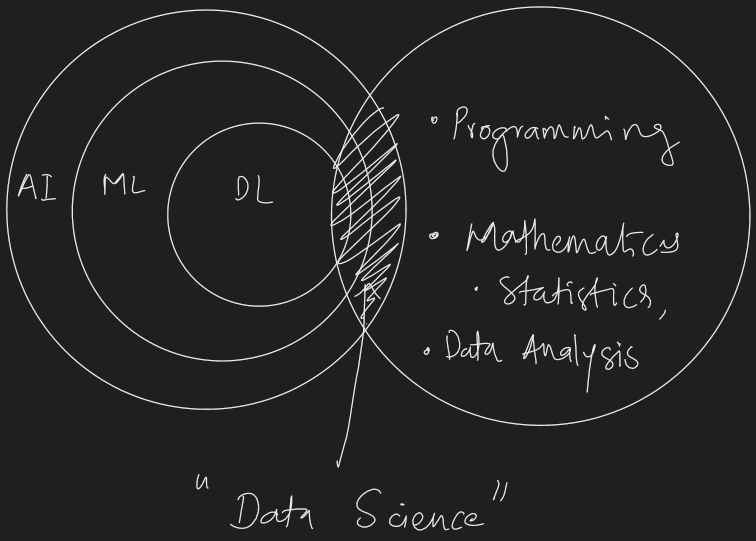 • Programming
AI ML DL
• Mathematics
• Statistics,
• Data Analysis
"Data Science"